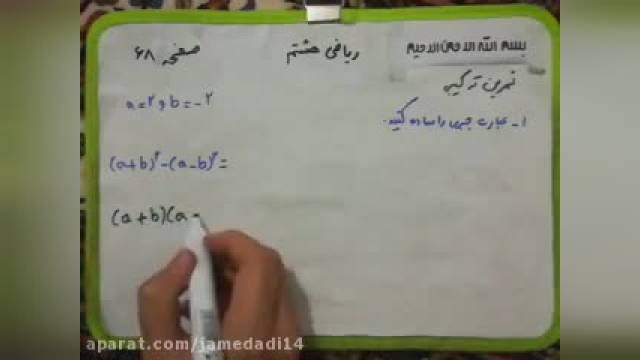 بسم الله الرحمن الرحیم
ریاضی هشتم
صفحه ۶۸
تمرین ترکیبی
۱- عبارت جبری را ساده کنید.
a=۲ و b=-۲
(a+b)²-(a-b)²=
(a+b)(a-
aparat.com/jamedadi14